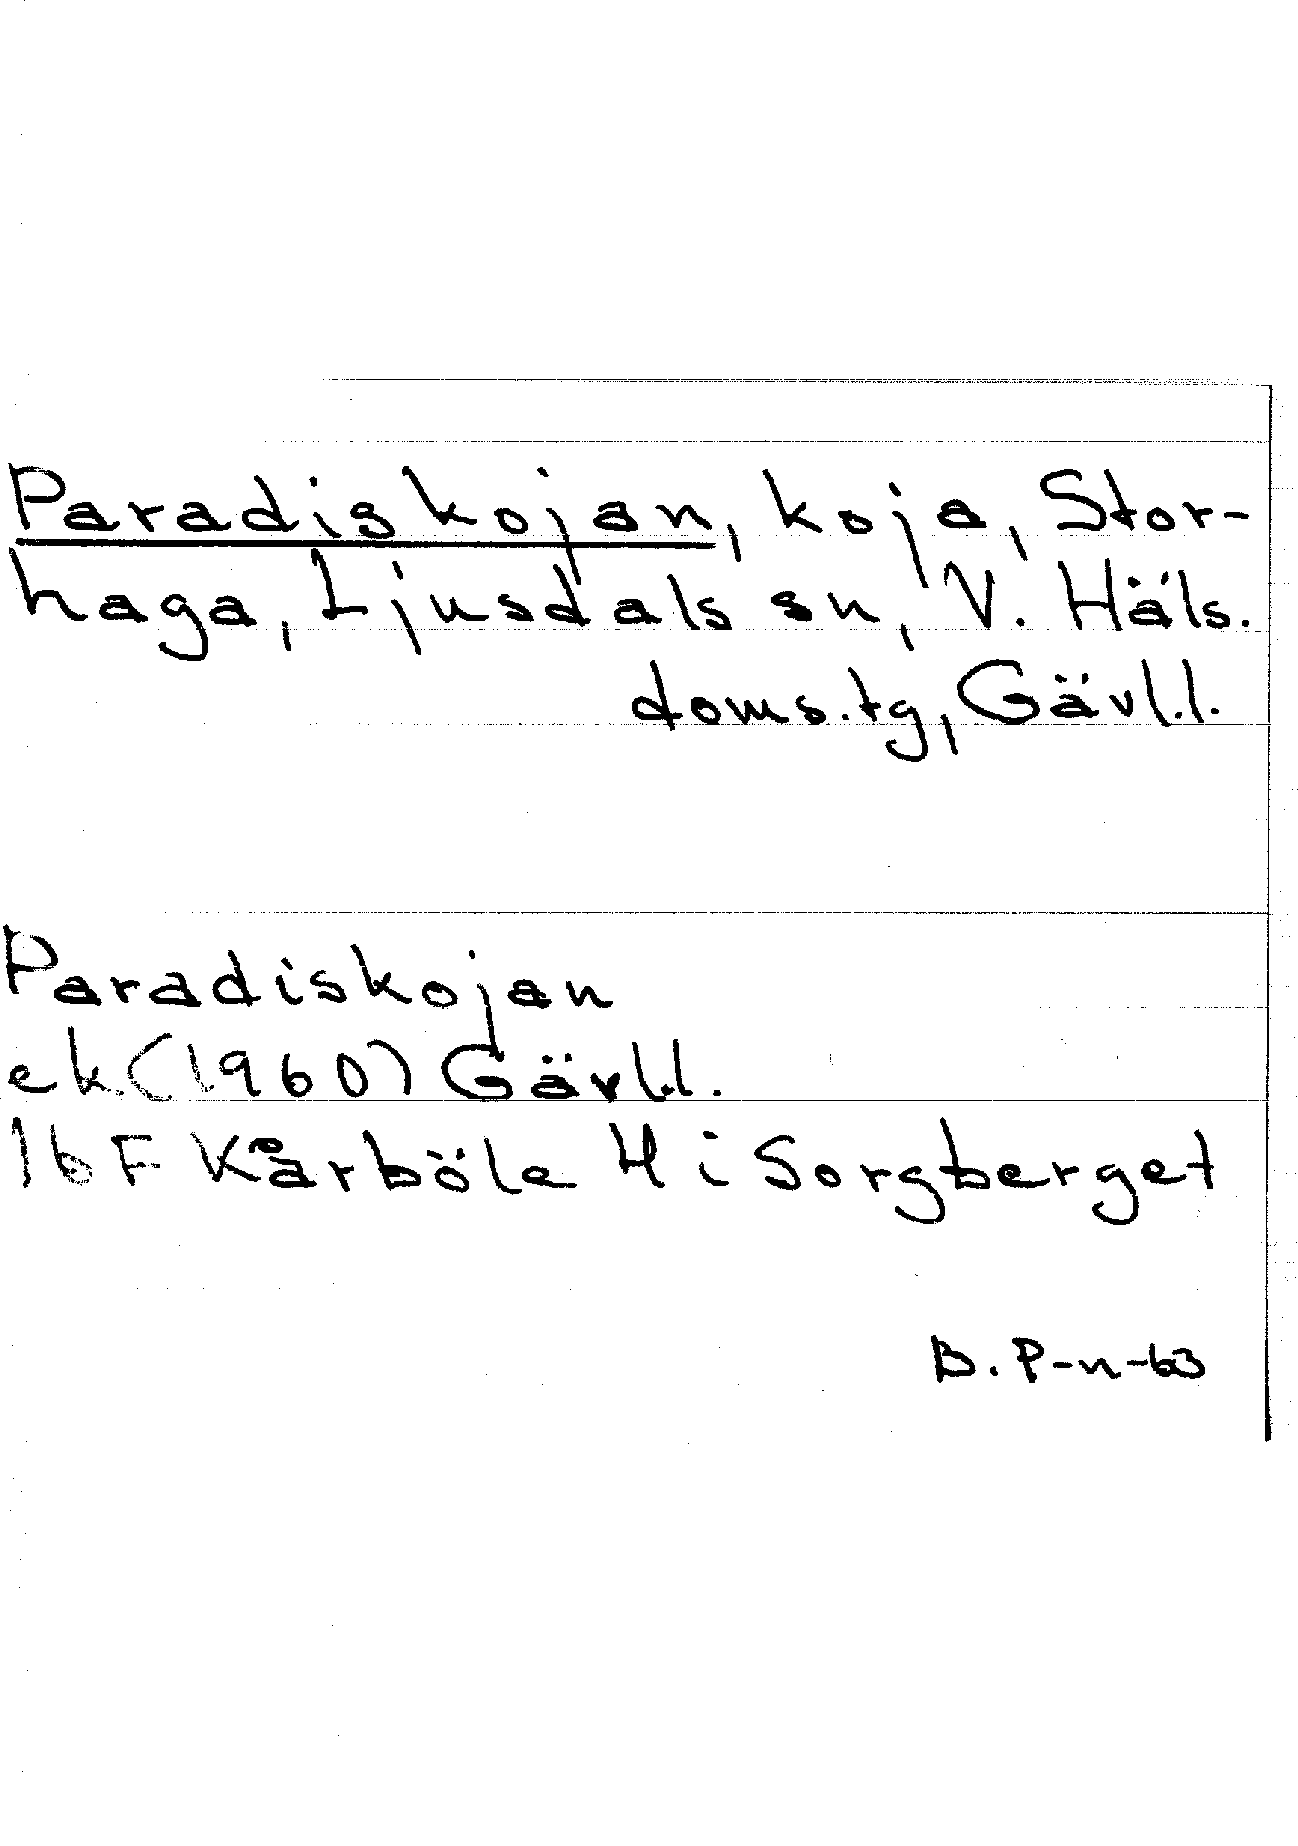 Paradiskojan, koja, Stor-
haga, Ljusdals sn, V. Häls.
doms.tg, Gävl.l.
Paradiskojan
ek(1960) Gävl.l.
16F Kårböle 4i Sorgberget
B. P-n-63